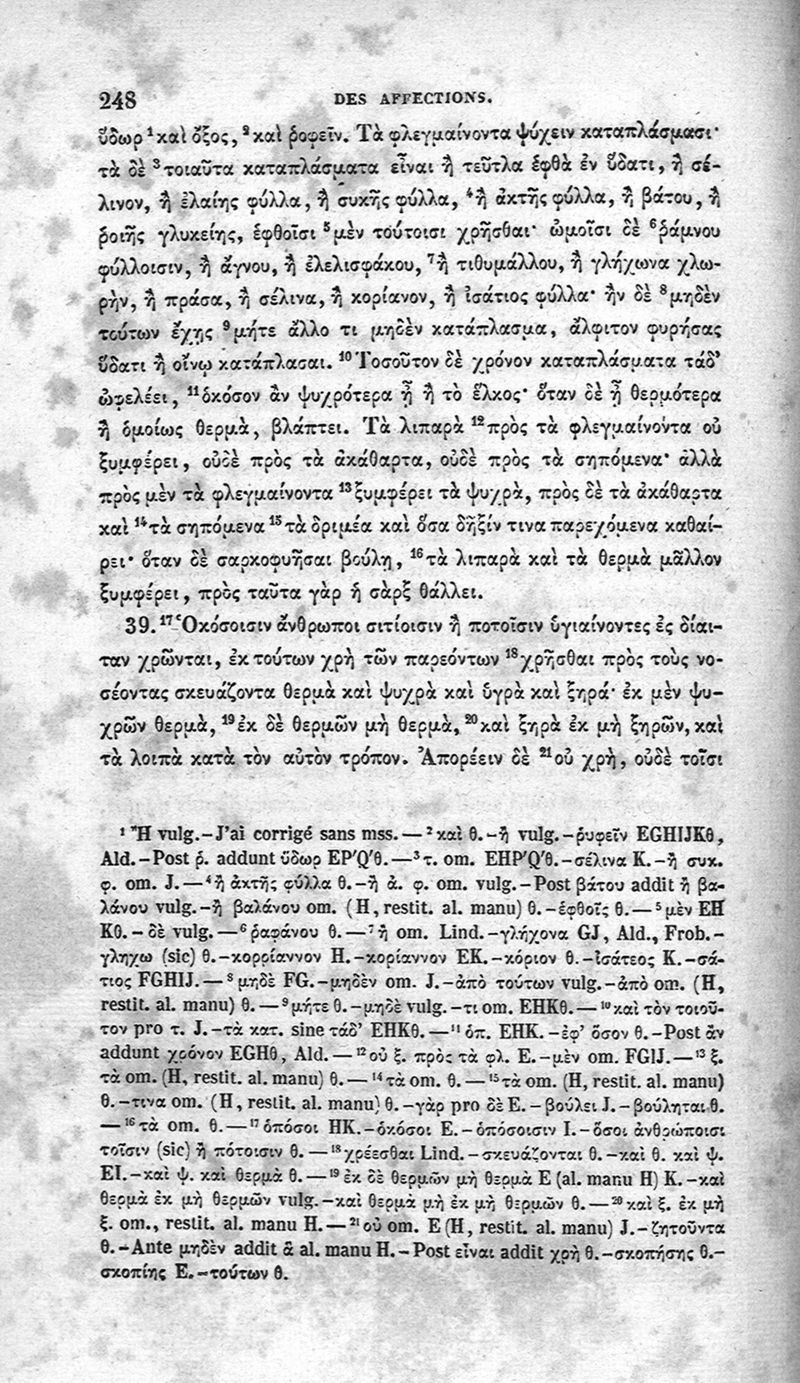 248 DES AFFECTIONS.
ὕδωρ ¹καὶ ὄξος, ²καὶ ῥοφεῖν. Τὰ φλεγμαίνοντα ψύχειν καταπλάσμασι·
τὰ δὲ ³τοιαῦτα καταπλάσματα εἶναι ἢ τεῦτλα ἑφθὰ ἐν ὕδατι, ἢ σέ-
λινον, ἢ ἐλαίης φύλλα, ἢ συκῆς φύλλα, ⁴ἢ ἀκτῆς φύλλα, ἢ βάτου, ἢ
ῥοιῆς γλυκείης, ἑφθοῖσι ⁵μὲν τούτοισι χρῆσθαι· ὠμοῖσι δὲ ⁶ῥάμνου
φύλλοισιν, ἢ ἄγνου, ἢ ἐλελισφάκου, ⁷ἢ τιθυμάλλου, ἢ γλήχωνα χλω-
ρὴν, ἢ πράσα, ἢ σέλινα, ἢ κορίανον, ἢ ἰσάτιος φύλλα· ἢν δὲ ⁸μηδὲν
τούτων ἔχῃς ⁹μήτε ἄλλο τι μηδὲν κατάπλασμα, ἄλφιτον φυρήσας
ὕδατι ἢ οἴνῳ κατάπλασαι. ¹⁰Τοσοῦτον δὲ χρόνον καταπλάσματα τάδ'
ὠφελέει, ¹¹ὁκόσον ἂν ψυχρότερα ᾖ ἢ τὸ ἕλκος· ὅταν δὲ ᾖ θερμότερα
ἢ ὁμοίως θερμὰ, βλάπτει. Τὰ λιπαρὰ ¹²πρὸς τὰ φλεγμαίνοντα οὐ
ξυμφέρει, οὐδὲ πρὸς τὰ ἀκάθαρτα, οὐδὲ πρὸς τὰ σηπόμενα· ἀλλὰ
πρὸς μὲν τὰ φλεγμαίνοντα ¹³ξυμφέρει τὰ ψυχρὰ, πρὸς δὲ τὰ ἀκάθαρτα
καὶ ¹⁴τὰ σηπόμενα ¹⁵τὰ δριμέα καὶ ὅσα δῆξίν τινα παρεχόμενα καθαί-
ρει· ὅταν δὲ σαρκοφυῆσαι βούλῃ, ¹⁶τὰ λιπαρὰ καὶ τὰ θερμὰ μᾶλλον
ξυμφέρει, πρὸς ταῦτα γὰρ ἡ σὰρξ θάλλει.
39. ¹⁷Ὁκόσοισιν ἄνθρωποι σιτίοισιν ἢ ποτοῖσιν ὑγιαίνοντες ἐς δίαι-
ταν χρῶνται, ἐκ τούτων χρὴ τῶν παρεόντων ¹⁸χρῆσθαι πρὸς τοὺς νο-
σέοντας σκευάζοντα θερμὰ καὶ ψυχρὰ καὶ ὑγρὰ καὶ ξηρά· ἐκ μὲν ψυ-
χρῶν θερμὰ, ¹⁹ἐκ δὲ θερμῶν μὴ θερμὰ, ²⁰καὶ ξηρὰ ἐκ μὴ ξηρῶν, καὶ
τὰ λοιπὰ κατὰ τὸν αὐτὸν τρόπον. Ἀπορέειν δὲ ²¹οὐ χρὴ, οὐδὲ τοῖσι
¹ Ἢ vulg. – J'ai corrigé sans mss. — ² καὶ θ. – ἢ vulg. – ῥυφεῖν EGHIJKθ,
Ald. – Post ῥ. addunt ὕδωρ EP'Q'θ. — ³ τ. om. EHP'Q'θ. – σέλινα K. – ἢ συκ.
φ. om. J. — ⁴ ἢ ἀκτῆς φύλλα θ. – ἢ ἀ. φ. om. vulg. – Post βάτου addit ἢ βα-
λάνου vulg. – ἢ βαλάνου om. (H, restit. al. manu) θ. – ἑφθοῖς θ. — ⁵ μὲν EH
Kθ. – δὲ vulg. — ⁶ ῥαφάνου θ. — ⁷ ἢ om. Lind. – γλήχονα GJ, Ald., Frob. –
γληχω (sic) θ. – κορρίαννον H. – κορίαννον EK. – κόριον θ. – ἰσάτεος K. – σά-
τιος FGHIJ. — ⁸ μηδὲ FG. – μηδὲν om. J. – ἀπὸ τούτων vulg. – ἀπὸ om. (H,
restit. al. manu) θ. — ⁹ μήτε θ. – μηδὲ vulg. – τι om. EHKθ. — ¹⁰ καὶ τὸν τοιοῦ-
τον pro τ. J. – τὰ κατ. sine τάδ' EHKθ. — ¹¹ ὁπ. EHK. – ἐφ' ὅσον θ. – Post ἂν
addunt χρόνον EGHθ, Ald. — ¹² οὐ ξ. πρὸς τὰ φλ. E. – μὲν om. FGIJ. — ¹³ ξ.
τὰ om. (H, restit. al. manu) θ. — ¹⁴ τὰ om. θ. — ¹⁵ τὰ om. (H, restit. al. manu)
θ. – τινα om. (H, restit. al. manu) θ. – γὰρ pro δὲ E. – βούλει J. – βούληται θ.
— ¹⁶ τὰ om. θ. — ¹⁷ ὁπόσοι HK. – ὁκόσοι E. – ὁπόσοισιν I. – ὅσοι ἀνθρώποισι
τοῖσιν (sic) ἢ πότοισιν θ. — ¹⁸ χρέεσθαι Lind. – σκευάζονται θ. – καὶ θ. καὶ ψ.
EI. – καὶ ψ. καὶ θερμὰ θ. — ¹⁹ ἐκ δὲ θερμῶν μὴ θερμὰ E (al. manu H) K. – καὶ
θερμὰ ἐκ μὴ θερμῶν vulg. – καὶ θερμὰ μὴ ἐκ μὴ θερμῶν θ. — ²⁰ καὶ ξ. ἐκ μὴ
ξ. om., restit. al. manu H. — ²¹ οὐ om. E (H, restit. al. manu) J. – ζητοῦντα
θ. – Ante μηδὲν addit ἃ al. manu H. – Post εἶναι addit χρὴ θ. – σκοπήσῃς θ. –
σκοπίης E. – τούτων θ.